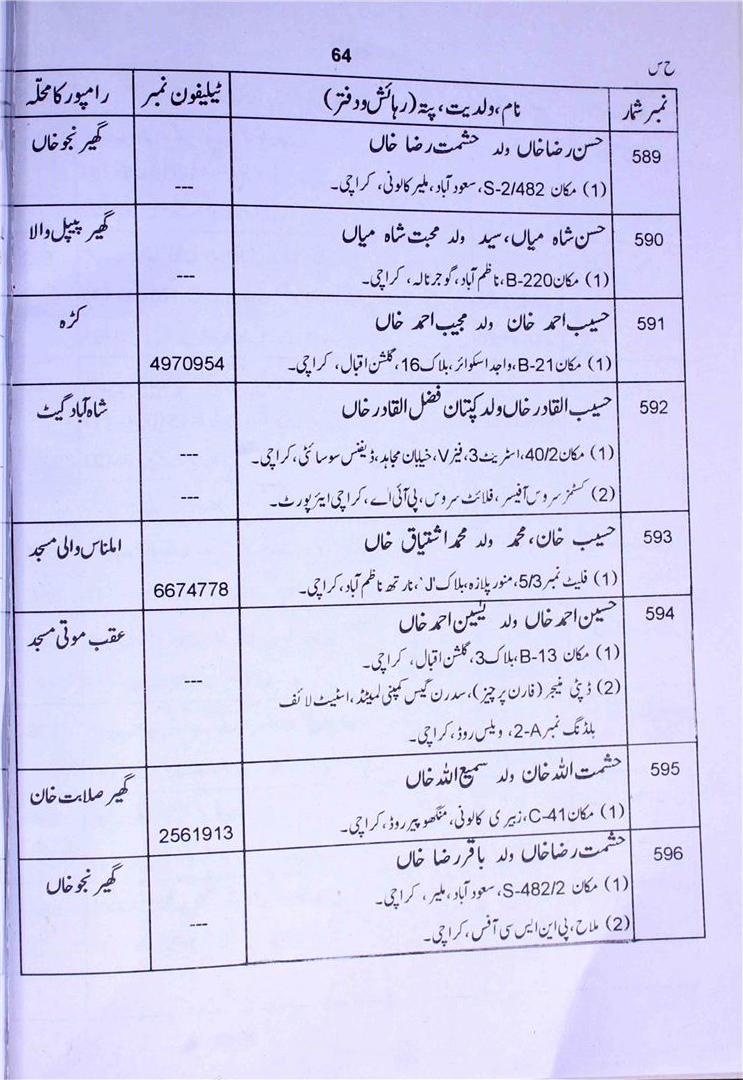 64
ح س
نمبر شمار	نام، ولدیت، پتہ (رہائش و دفتر)	ٹیلیفون نمبر	رامپور کا محلّہ
589	حسن رضا خاں ولد حشمت رضا خاں	گھیر نجو خاں
(1) مکان S-2/482، سعود آباد، ملیر کالونی، کراچی۔	---
590	حسن شاہ میاں، سید ولد محبت شاہ میاں	گھیر پیپل والا
(1) مکان B-220، ناظم آباد، گوجر نالہ، کراچی۔	---
591	حسیب احمد خان ولد مجیب احمد خاں	کڑہ
(1) مکان B-21، واجد اسکوائر، بلاک 16، گلشن اقبال، کراچی۔	4970954
592	حسیب القادر خاں ولد کپتان فضل القادر خاں	شاہ آباد گیٹ
(1) مکان 40/2، اسٹریٹ 3، فیز V، خیابان مجاہد، ڈیفنس سوسائٹی، کراچی۔	---
(2) کسٹمز سروس آفیسر، فلائٹ سروس، پی آئی اے، کراچی ایئرپورٹ۔	---
593	حسیب خان، محمد ولد محمد اشتیاق خاں	املناس والی مسجد
(1) فلیٹ نمبر 5/3، منور پلازہ، بلاک 'J'، نارتھ ناظم آباد، کراچی۔	6674778
594	حسین احمد خاں ولد یٰسین احمد خاں	عقب موتی مسجد
(1) مکان B-13، بلاک 3، گلشن اقبال، کراچی۔
(2) ڈپٹی منیجر (فارن پرچیز)، سدرن گیس کمپنی لمیٹڈ، اسٹیٹ لائف	---
بلڈنگ نمبر 2-A، ویلس روڈ، کراچی۔
595	حشمت اللہ خان ولد سمیع اللہ خاں	گھیر صلابت خان
(1) مکان C-41، زبیری کالونی، منگھوپیر روڈ، کراچی۔	2561913
596	حشمت رضا خاں ولد باقر رضا خاں	گھیر نجو خاں
(1) مکان S-482/2، سعود آباد، ملیر، کراچی۔
(2) ملاح، پی این ایس سی آفس، کراچی۔	---